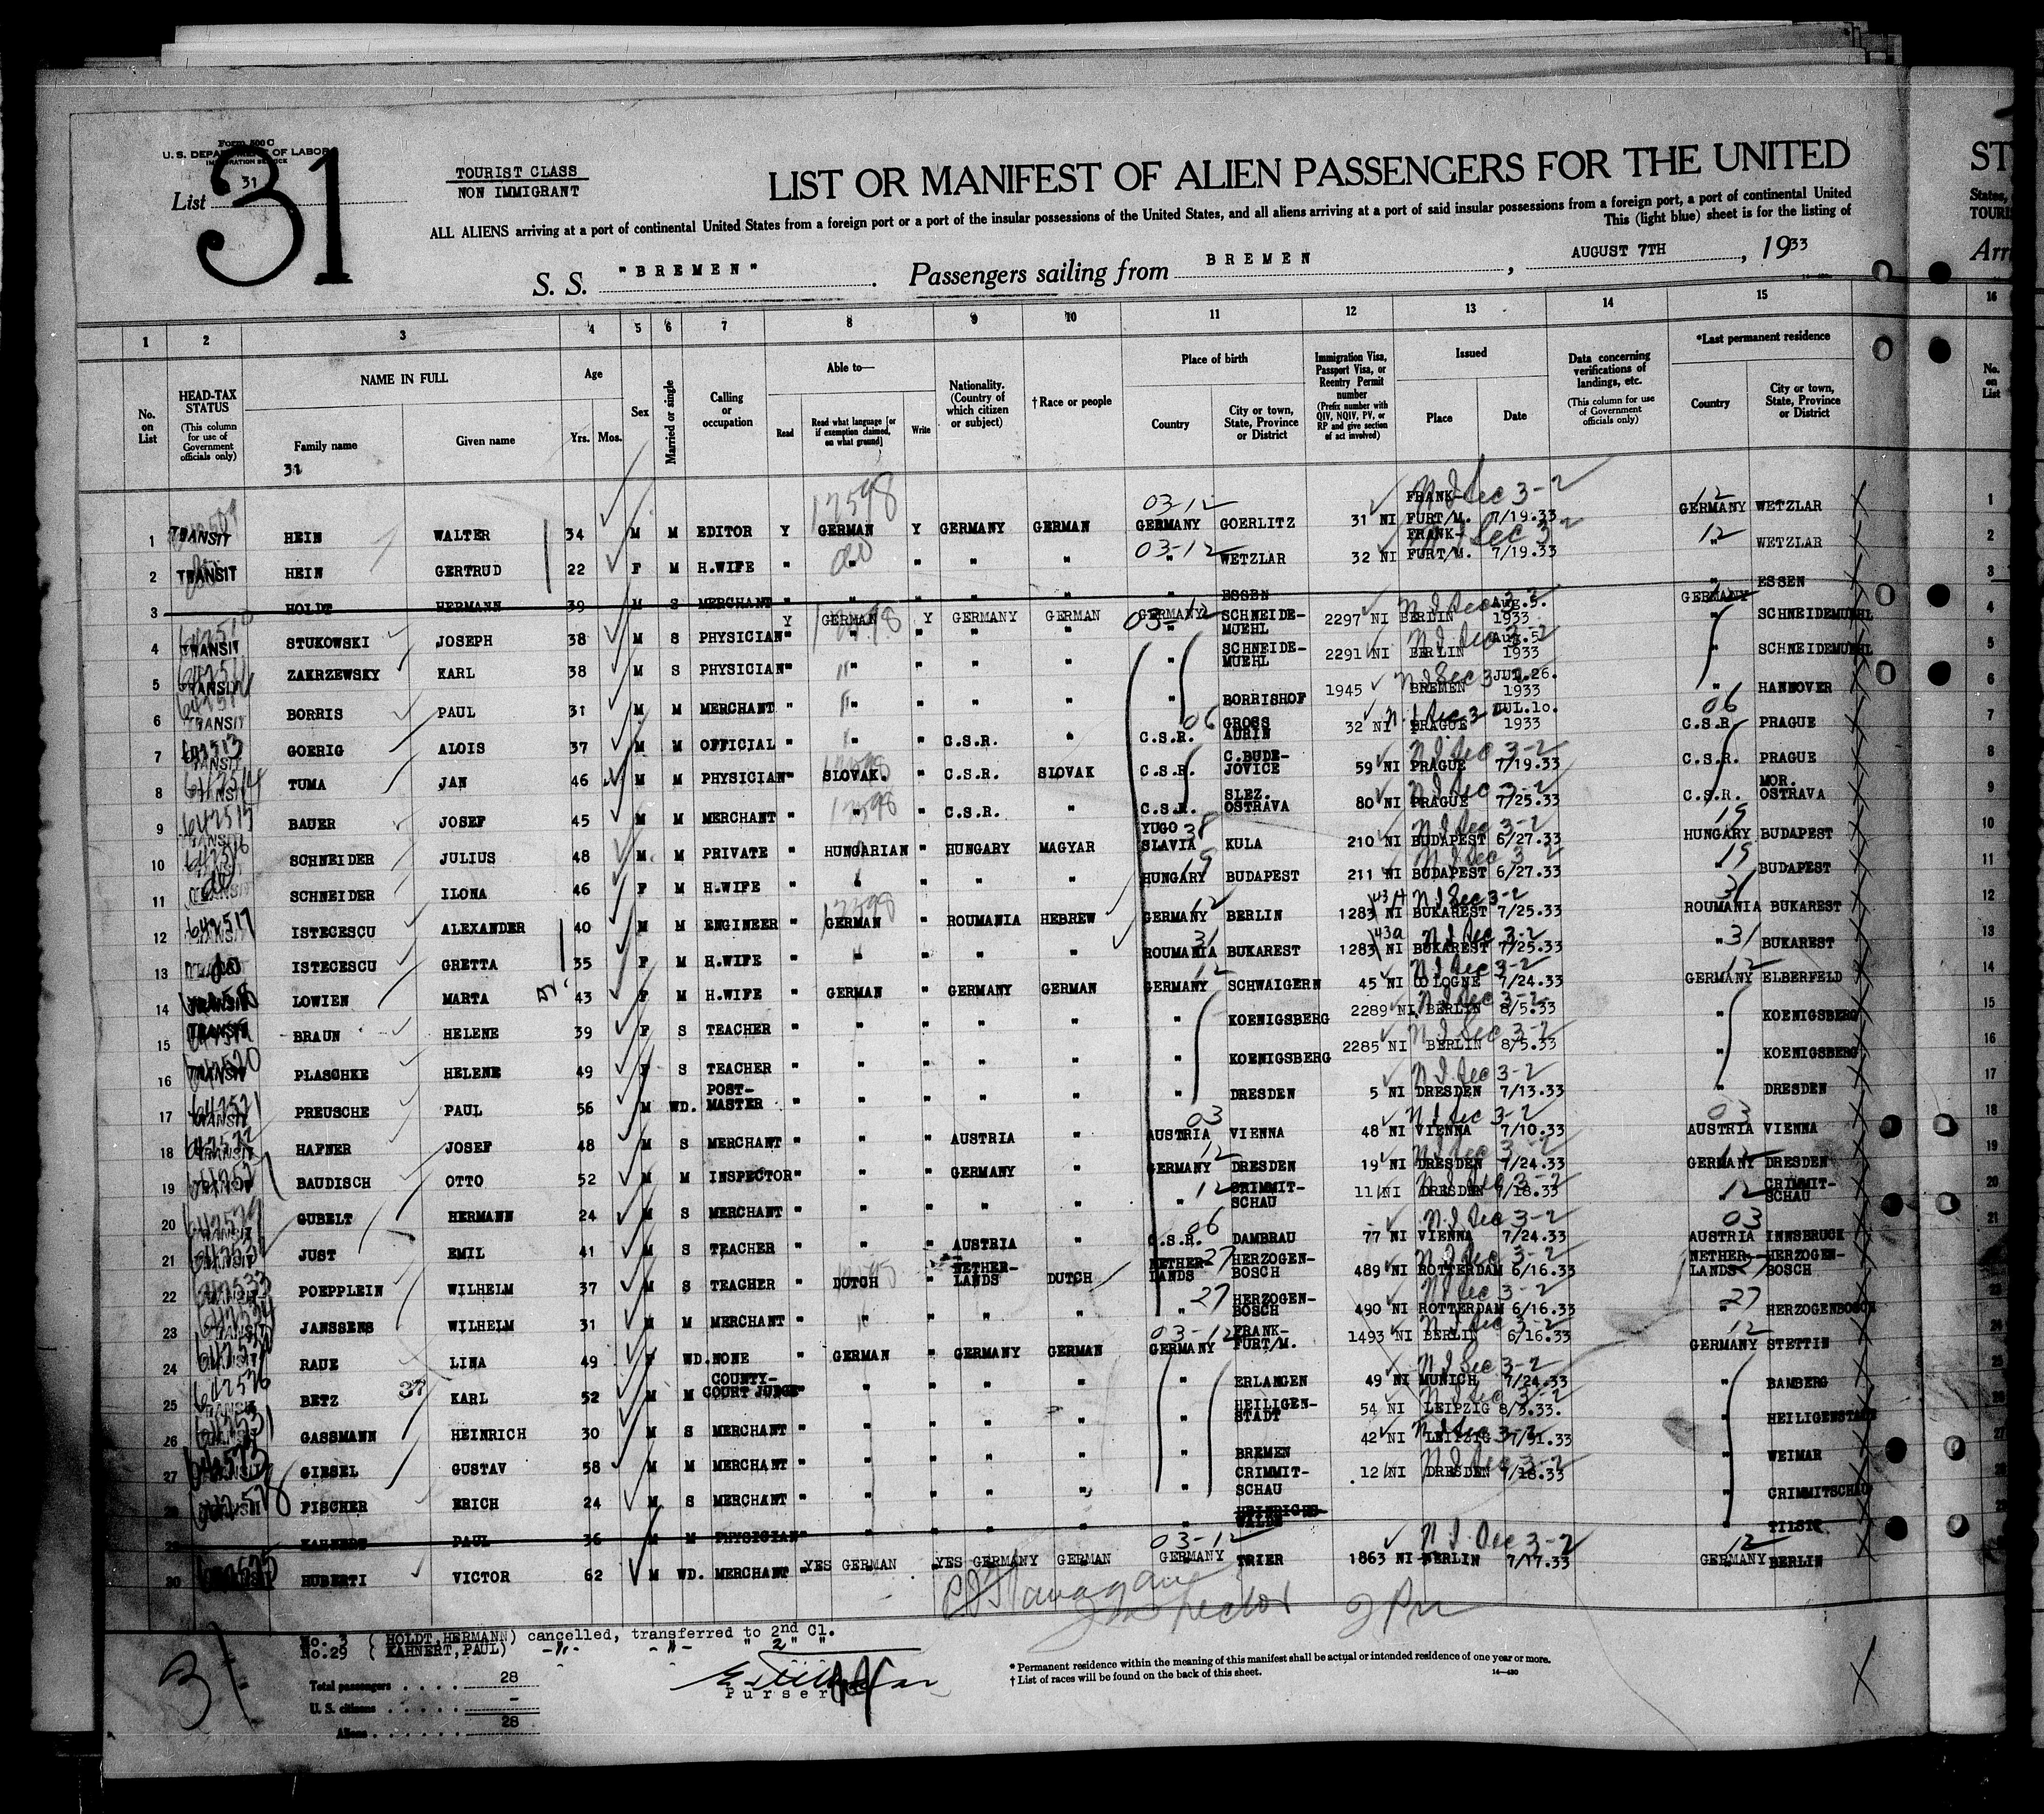 Form 500 C
U. S. DEPARTMENT OF LABOR
IMMIGRATION SERVICE
31
List 31
TOURIST CLASS
NON IMMIGRANT
LIST OR MANIFEST OF ALIEN PASSENGERS FOR THE UNITED
ALL ALIENS arriving at a port of continental United States from a foreign port or a port of the insular possessions of the United States, and all aliens arriving at a port of said insular possessions from a foreign port, a port of continental United
This (light blue) sheet is for the listing of
S. S. "BREMEN". Passengers sailing from BREMEN, AUGUST 7TH, 1933
ST
States,
Arri
1 2 3 4 5 6 7 8 9 10 11 12 13 14 15 16
No. on List
HEAD-TAX STATUS (This column for use of Government officials only)
NAME IN FULL Family name Given name
31
Age Yrs. Mos.
Sex
Married or single
Calling or occupation
Able to— Read Read what language [or if exemption claimed, on what ground] Write
Nationality. (Country of which citizen or subject)
†Race or people
Place of birth Country City or town, State, Province or District
Immigration Visa, Passport Visa, or Reentry Permit number (Prefix number with QIV, NQIV, PV, or RP and give section of act involved)
Issued Place Date
Data concerning verifications of landings, etc. (This column for use of Government officials only)
*Last permanent residence Country City or town, State, Province or District
No. on List
1 TRANSIT HEIN WALTER 34 M M EDITOR Y GERMAN Y GERMANY GERMAN 03-12 GERMANY GOERLITZ 31 NI FRANKFURT/M. 7/19.33 12 GERMANY WETZLAR 1
2 TRANSIT HEIN GERTRUD 22 F M H.WIFE " " " " " 03-12 " WETZLAR 32 NI FRANKFURT/M. 7/19.33 12 " WETZLAR 2
3 HOLDT HERMANN 39 M S MERCHANT " " " " " " ESSEN " ESSEN 3
4 TRANSIT STUKOWSKI JOSEPH 38 M S PHYSICIAN Y GERMAN Y GERMANY GERMAN 03-12 GERMANY SCHNEIDEMUEHL 2297 NI BERLIN Aug.5. 1933 GERMANY SCHNEIDEMUEHL 4
5 TRANSIT ZAKRZEWSKY KARL 38 M S PHYSICIAN " " " " " " SCHNEIDEMUEHL 2291 NI BERLIN Aug.5 1933 " SCHNEIDEMUEHL 5
6 TRANSIT BORRIS PAUL 31 M M MERCHANT " " " " " " BORRISHOF 1945 BREMEN JUL.26. 1933 " HANNOVER 6
7 TRANSIT GOERIG ALOIS 37 M M OFFICIAL " " " C.S.R. " 06 C.S.R. GROSS AURIN 32 NI PRAGUE JUL.10. 1933 06 C.S.R. PRAGUE 7
8 TRANSIT TUMA JAN 46 M M PHYSICIAN " SLOVAK. " C.S.R. SLOVAK C.S.R. C.BUDEJOVICE 59 NI PRAGUE 7/19.33 C.S.R. PRAGUE 8
9 TRANSIT BAUER JOSEF 45 M M MERCHANT " " " C.S.R. " C.S.R. SLEZ. OSTRAVA 80 NI PRAGUE 7/25.33 C.S.R. MOR. OSTRAVA 9
10 TRANSIT SCHNEIDER JULIUS 48 M M PRIVATE " HUNGARIAN " HUNGARY MAGYAR YUGO SLAVIA 38 KULA 210 NI BUDAPEST 6/27.33 19 HUNGARY BUDAPEST 10
11 TRANSIT SCHNEIDER ILONA 46 F M H.WIFE " " " " " 19 HUNGARY BUDAPEST 211 NI BUDAPEST 6/27.33 19 " BUDAPEST 11
12 TRANSIT ISTECESCU ALEXANDER 40 M M ENGINEER " GERMAN " ROUMANIA HEBREW 12 GERMANY BERLIN 1283 NI BUKAREST 7/25.33 31 ROUMANIA BUKAREST 12
13 ISTECESCU GRETTA 35 F M H.WIFE " " " " " 31 ROUMANIA BUKAREST 1283 NI BUKAREST 7/25.33 " 31 BUKAREST 13
14 TRANSIT LOWIEN MARTA 43 F M H.WIFE " GERMAN " GERMANY GERMAN 12 GERMANY SCHWAIGERN 45 NI COLOGNE 7/24.33 12 GERMANY ELBERFELD 14
15 TRANSIT BRAUN HELENE 39 F S TEACHER " " " " " " KOENIGSBERG 2289 NI BERLIN 8/5.33 " KOENIGSBERG 15
16 TRANSIT PLASCHKE HELENE 49 F S TEACHER " " " " " " KOENIGSBERG 2285 NI BERLIN 8/5.33 " KOENIGSBERG 16
17 TRANSIT PREUSCHE PAUL 56 M WD. POSTMASTER " " " " " " DRESDEN 5 NI DRESDEN 7/13.33 " DRESDEN 17
18 TRANSIT HAFNER JOSEF 48 M S MERCHANT " " " AUSTRIA " 03 AUSTRIA VIENNA 48 NI VIENNA 7/10.33 03 AUSTRIA VIENNA 18
19 TRANSIT BAUDISCH OTTO 52 M M INSPECTOR " " " GERMANY " 12 GERMANY DRESDEN 19 NI DRESDEN 7/24.33 12 GERMANY DRESDEN 19
20 GUBELT HERMANN 24 M S MERCHANT " " " " " " 12 CRIMMITSCHAU 11 NI DRESDEN 7/18.33 " 12 CRIMMITSCHAU 20
21 TRANSIT JUST EMIL 41 M S TEACHER " " " AUSTRIA " 06 C.S.R. DAMBRAU 77 NI VIENNA 7/24.33 03 AUSTRIA INNSBRUCK 21
22 TRANSIT POEPPLEIN WILHELM 37 M S TEACHER " DUTCH " NETHERLANDS DUTCH NETHERLANDS 27 HERZOGENBOSCH 489 NI ROTTERDAM 6/16.33 NETHERLANDS 27 HERZOGENBOSCH 22
23 TRANSIT JANSSENS WILHELM 31 M M MERCHANT " " " " " " 27 HERZOGENBOSCH 490 NI ROTTERDAM 6/16.33 27 " HERZOGENBOSCH 23
24 RAUE LINA 49 F WD. NONE " GERMAN " GERMANY GERMAN 03-12 GERMANY FRANKFURT/M. 1493 NI BERLIN 6/16.33 12 GERMANY STETTIN 24
25 TRANSIT BETZ 37 KARL 52 M M COUNTY-COURT JUDGE " " " " " " ERLANGEN 49 NI MUNICH 7/24.33 " BAMBERG 25
26 GASSMANN HEINRICH 30 M S MERCHANT " " " " " " HEILIGENSTADT 54 NI LEIPZIG 8/3.33. " HEILIGENSTADT 26
27 TRANSIT GIESEL GUSTAV 58 M M MERCHANT " " " " " " BREMEN 42 NI LEIPZIG 7/31.33 " WEIMAR 27
28 TRANSIT FISCHER ERICH 24 M S MERCHANT " " " " " " CRIMMITSCHAU 12 NI DRESDEN 7/18.33 " CRIMMITSCHAU 28
29 KAHNERT PAUL 36 M M PHYSICIAN " " " " " " HEINRICHSWALDE " TILSIT 29
30 TRANSIT HUBERTI VICTOR 62 M WD. MERCHANT YES GERMAN YES GERMANY GERMAN 03-12 GERMANY TRIER 1863 NI BERLIN 7/17.33 12 GERMANY BERLIN
Inspector
No. 3 (HOLDT,HERMANN) cancelled, transferred to 2nd Cl.
No.29 (KAHNERT,PAUL) -"- -"- " 2" "
Total passengers 28
U. S. citizens -
Aliens 28
Purser
* Permanent residence within the meaning of this manifest shall be actual or intended residence of one year or more.
† List of races will be found on the back of this sheet.
14—430